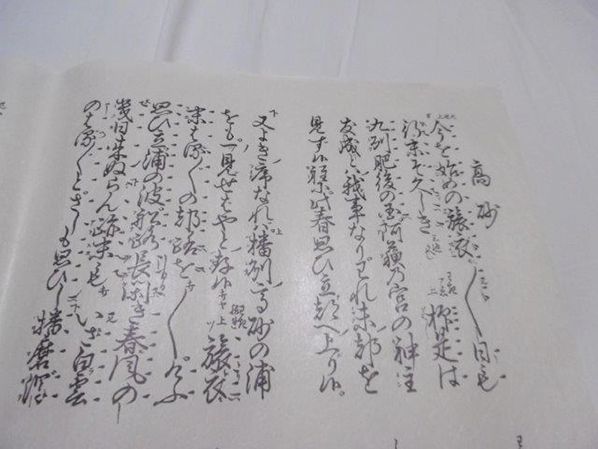 高砂
今を始めの旅衣〱日も
行末ぞ久しき 抑是は
九州肥後の国阿蘇の宮の神主
友成とは我事なり われ未都を
見ず候程に此春思ひ立都へ上り候。
又よき序なれば播州高砂の浦
をも一見せばやと存候 旅衣
末はる〲の都路を〱けふ
思ひ立浦の波船路長閑き春風の
幾日来ぬらん跡末もいさ白雲
のはる〲とさしも思ひし播磨潟